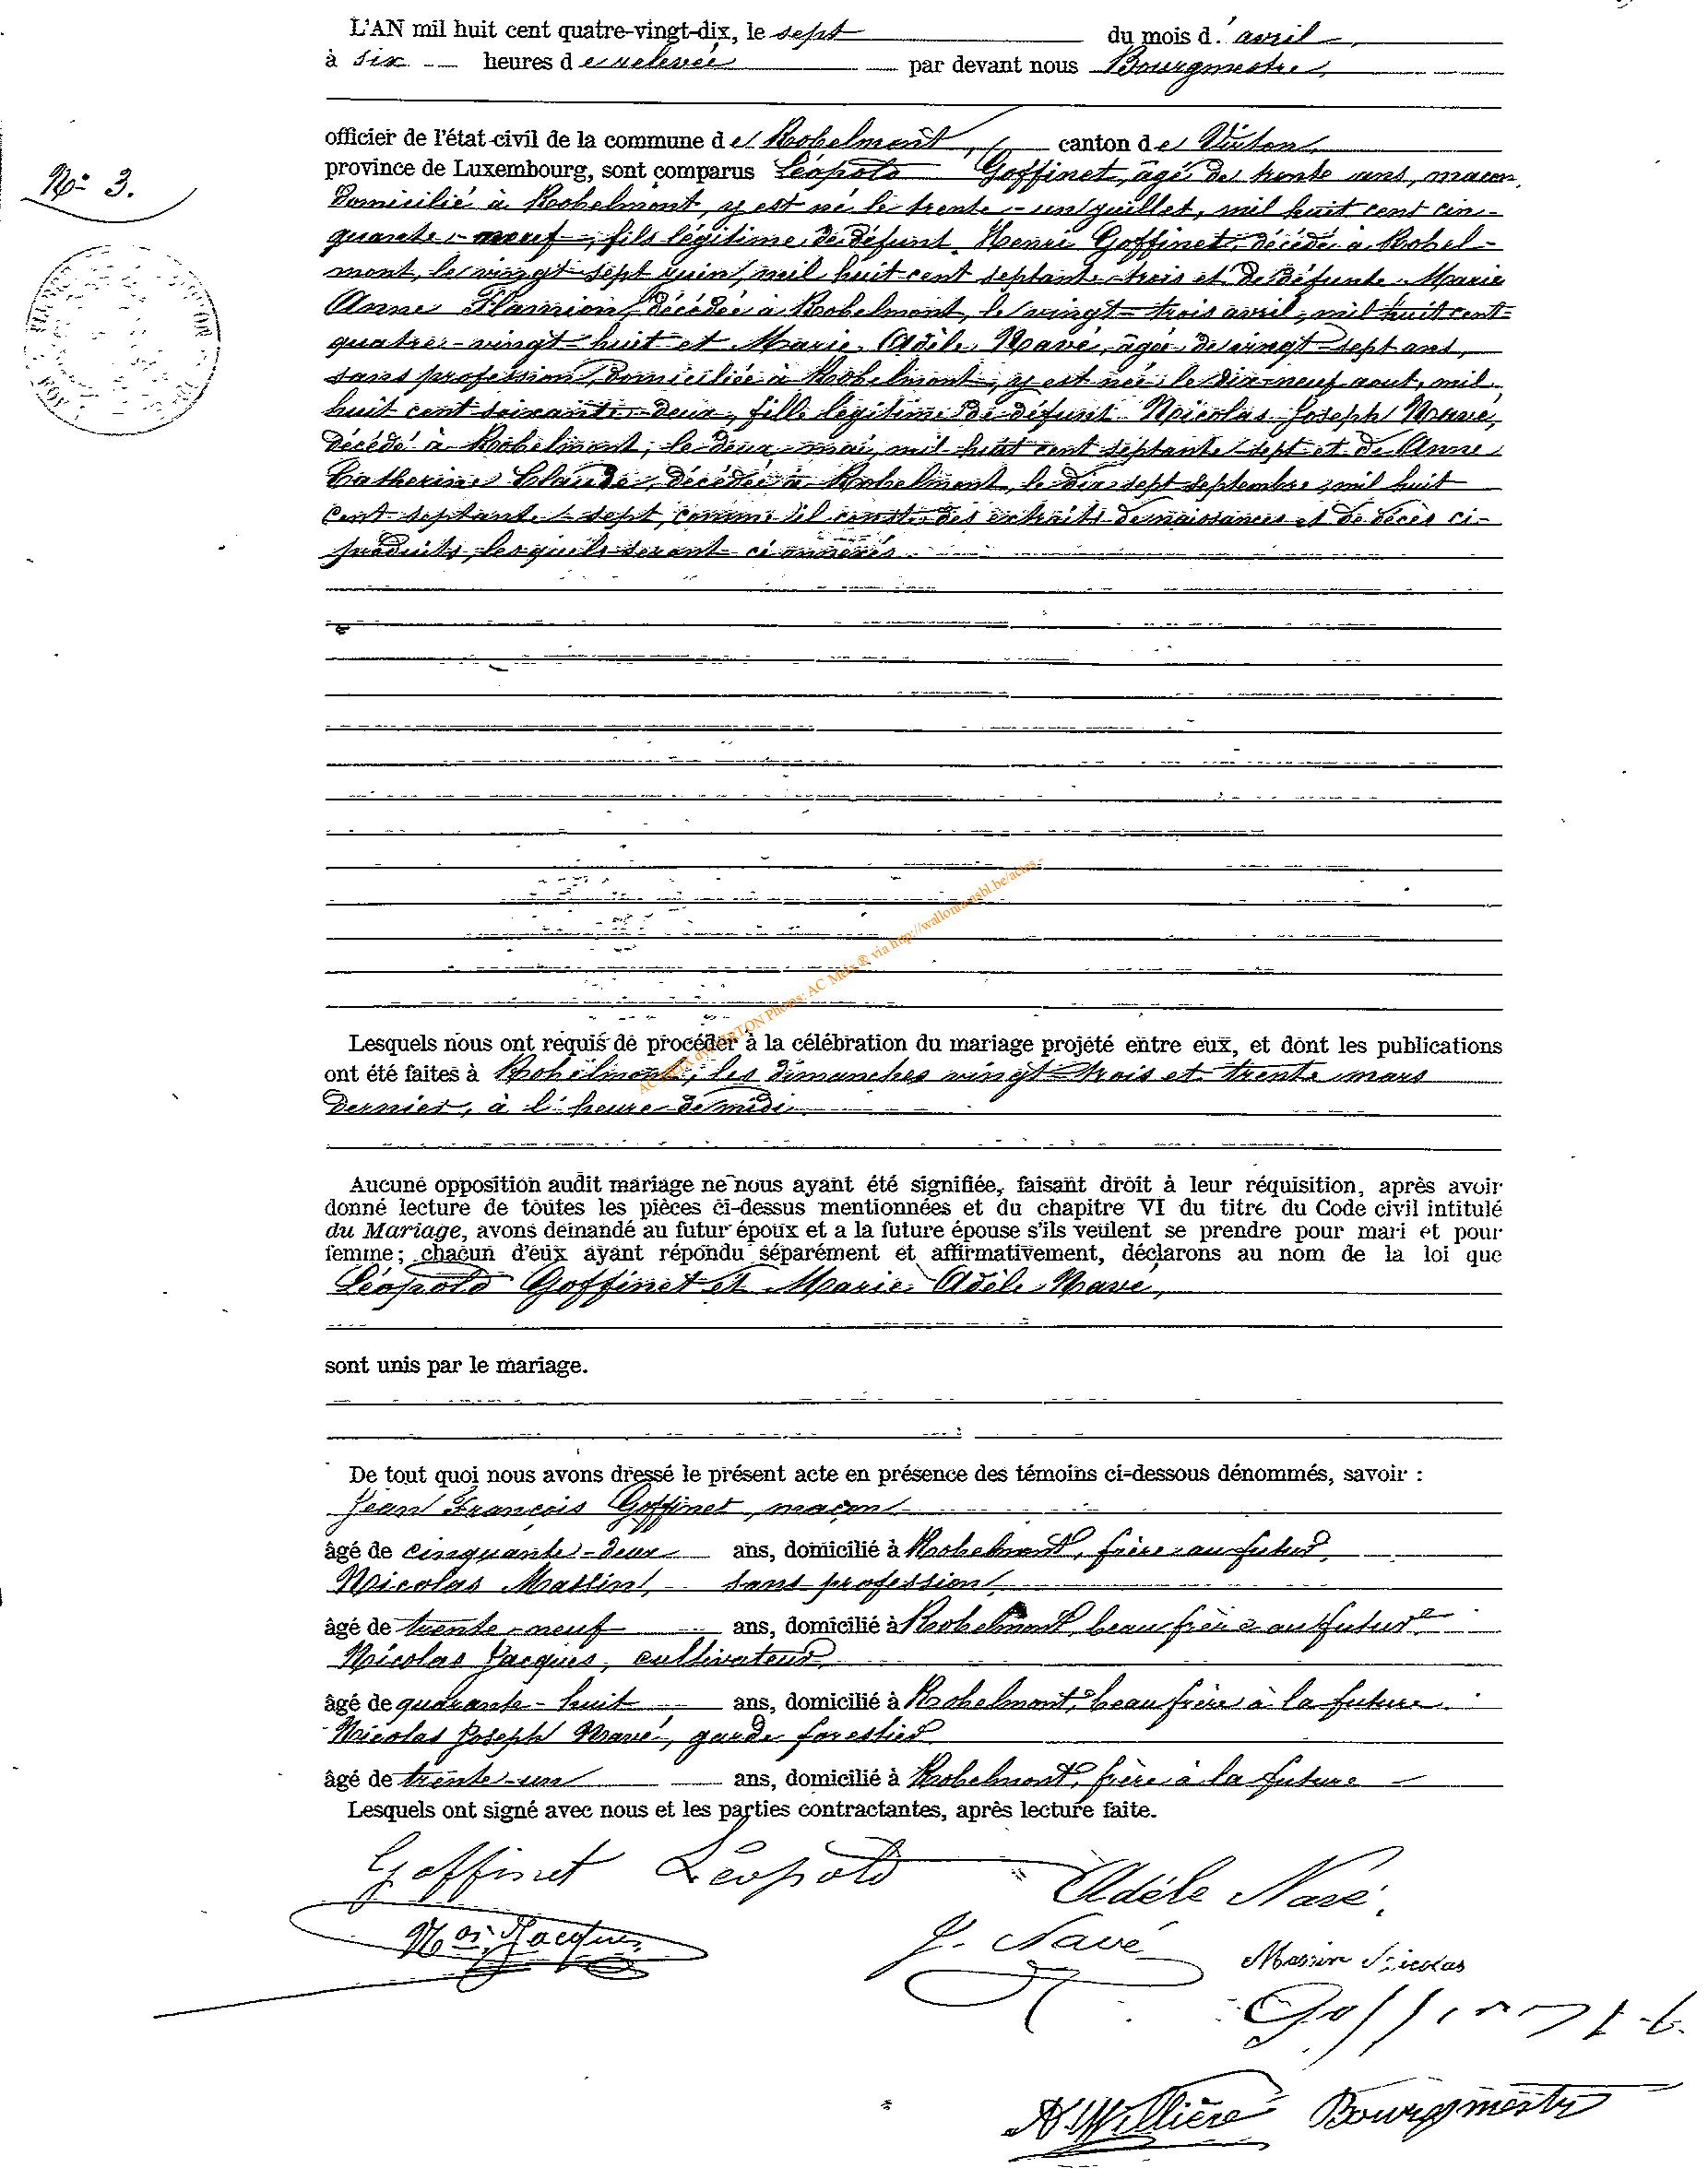 L'AN mil huit cent quatre-vingt-dix, le sept du mois d'avril
à six heures de relevée par devant nous Bourgmestre,
officier de l'état-civil de la commune de Robelmont, canton de Virton,
N° 3.
province de Luxembourg, sont comparus Léopold Goffinet, âgé de trente ans, maçon,
domicilié à Robelmont, y est né le trente-un juillet, mil huit cent cin-
quante-neuf, fils légitime de défunt Henri Goffinet, décédé à Robel-
mont, le vingt-sept juin, mil huit cent septante-trois et de défunte Marie
Anne Flamion, décédée à Robelmont, le vingt-trois avril, mil huit cent
quatre-vingt-huit et Marie Adèle Navé, âgée de vingt-sept ans,
sans profession, domiciliée à Robelmont, y est née le dix-neuf aout, mil
huit cent soixante-deux, fille légitime de défunt Nicolas Joseph Navé,
décédé à Robelmont, le deux mai, mil huit cent septante-sept et de Anne
Catherine Claude, décédée à Robelmont, le dix sept septembre, mil huit
cent septante-sept, comme il conste des extraits de naissances et de décès ci-
produits, lesquels seront ci annexés.
AC Meix via http://wallonia-asbl.be/actes-
Lesquels nous ont requis de procéder à la célébration du mariage projeté entre eux, et dont les publications
ont été faites à Robelmont, les dimanches vingt-trois et trente mars
dernier, à l'heure de midi.
Aucune opposition audit mariage ne nous ayant été signifiée, faisant droit à leur réquisition, après avoir
donné lecture de toutes les pièces ci-dessus mentionnées et du chapitre VI du titre du Code civil intitulé
du Mariage, avons demandé au futur époux et a la future épouse s'ils veulent se prendre pour mari et pour
femme; chacun d'eux ayant répondu séparément et affirmativement, déclarons au nom de la loi que
Léopold Goffinet et Marie Adèle Navé,
sont unis par le mariage.
De tout quoi nous avons dressé le présent acte en présence des témoins ci-dessous dénommés, savoir :
Jean François Goffinet, maçon
âgé de cinquante-deux ans, domicilié à Robelmont, frère au futur.
Nicolas Massin, sans profession,
âgé de trente-neuf ans, domicilié à Robelmont, beau frère au futur
Nicolas Jacques, cultivateur
âgé de quarante-huit ans, domicilié à Robelmont, beau frère à la future.
Nicolas Joseph Navé, garde forestier
âgé de trente-un ans, domicilié à Robelmont, frère à la future
Lesquels ont signé avec nous et les parties contractantes, après lecture faite.
Goffinet Léopold Adèle Navé.
Nas. Jacques J. Navé Massin Nicolas
Goffinet
Willière Bourgmestre